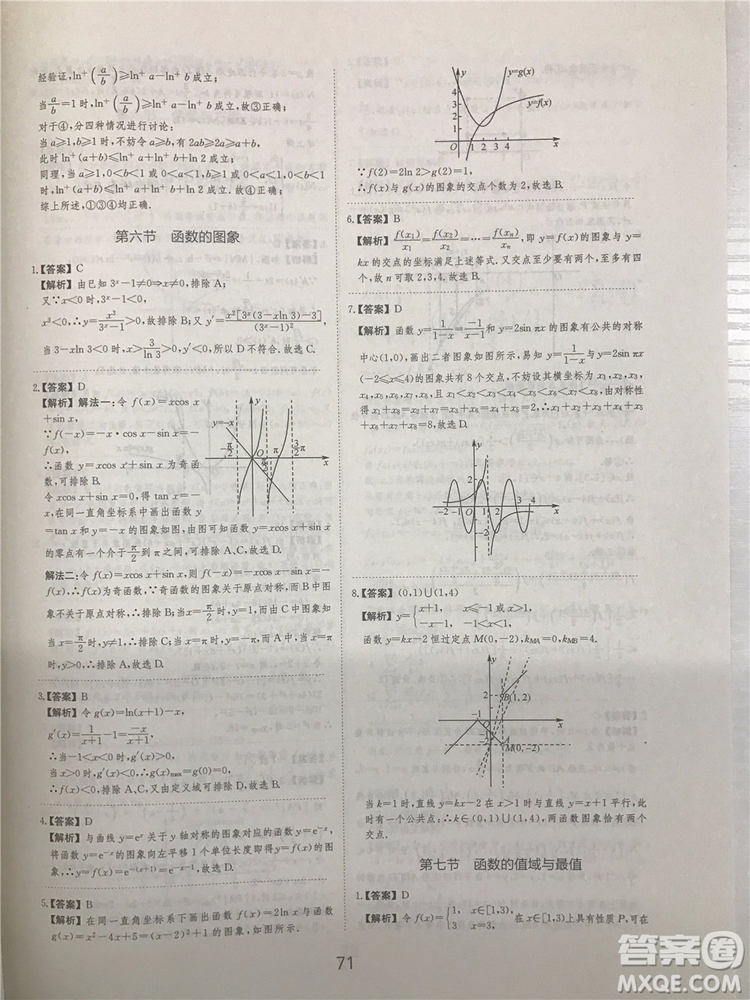 经验证,ln⁺(a/b)≥ln⁺ a−ln⁺ b成立;
当a/b=1时,ln⁺(a/b)≥ln⁺ a−ln⁺ b成立;故③正确;
对于④,分四种情况进行讨论:
当a≥1,b≥1时,不妨令a≥b,有2ab≥2a≥a+b,
此时ln⁺(a+b)≤ln⁺ a+ln⁺ b+ln 2成立;
同理,当a≥1,0<b<1或0<a<1,b≥1或0<a<1,0<b<1
时,ln⁺(a+b)≤ln⁺ a+ln⁺ b+ln 2成立;
综上所述,①③④均正确.
第六节 函数的图象
1.【答案】C
【解析】由已知3ˣ−1≠0⇒x≠0,排除A;
又∵x<0时,
x³<0,∴y=x³/(3ˣ−1)>0,故排除B;又y′=x²[3ˣ(3−xln 3)−3]/(3ˣ−1)²,
当3−xln 3<0时,x>3/ln 3>0,y′<0,所以D不符合.故选C.
2.【答案】D
【解析】解法一:令f(x)=xcos
x+sin x,
∵f(−x)=−x·cos x−sin x=
−f(x),
∴函数y=xcos x+sin x为奇函
数,可排除B.
令xcos x+sin x=0,得tan x=
−x,在同一直角坐标系中画出函数
y=tan x和y=−x的图象如图,由图可知函数y=xcos x+sin x
的零点有一个介于π/2到π之间,可排除A、C,故选D.
y=−x
−π/2
O
π/2
π
3/2π
x
解法二:令f(x)=xcos x+sin x,则f(−x)=−xcos x−sin x=
−f(x),∴f(x)为奇函数,∴函数图象关于原点对称,而B中图
象不关于原点对称,∴排除B;当x=π/2时,y=1,而由C中图象
知,当x=π/2时,y≠1,∴排除C;当x在x轴正半轴且趋向于0
时,y>0,∴排除A,故选D.
3.【答案】B
【解析】令g(x)=ln(x+1)−x,
g′(x)=1/(x+1)−1=−x/(x+1),
∴当−1<x<0时,g′(x)>0;
当x>0时,g′(x)<0,∴g(x)max=g(0)=0.
∴f(x)<0,排除A、C,又由定义域可排除D,故选B.
4.【答案】D
【解析】与曲线y=eˣ关于y轴对称的图象对应的函数y=e⁻ˣ,
将函数y=e⁻ˣ的图象向左平移1个单位长度即得y=f(x)的
图象,∴y=f(x)=e⁻⁽ˣ⁺¹⁾=e⁻ˣ⁻¹,故选D.
5.【答案】B
【解析】在同一直角坐标系下画出函数f(x)=2ln x与函数
g(x)=x²−4x+5=(x−2)²+1的图象,如图所示.
y
y=g(x)
y=f(x)
4
3
2
1
O
1 2 3 4
x
∵f(2)=2ln 2>g(2)=1,
∴f(x)与g(x)的图象的交点个数为2,故选B.
6.【答案】B
【解析】f(x₁)/x₁=f(x₂)/x₂=⋯=f(xₙ)/xₙ,即y=f(x)的图象与y=
kx的交点的坐标满足上述等式.又交点至少要有两个,至多
有四个,故n可取2,3,4.故选B.
7.【答案】D
【解析】函数y=1/(1−x)=−1/(x−1)和y=2sin πx的图象有公共的对称
中心(1,0),画出二者图象如图所示,易知y=1/(1−x)与y=2sin πx
(−2≤x≤4)的图象共有8个交点,不妨设其横坐标为x₁,x₂,x₃,
x₄,x₅,x₆,x₇,x₈,且x₁<x₂<x₃<x₄<x₅<x₆<x₇<x₈,由对称性
得x₁+x₈=x₂+x₇=x₃+x₆=x₄+x₅=2,∴x₁+x₂+x₃+x₄+x₅+
x₆+x₇+x₈=8,故选D.
y
2
−2 −1
O
1 2 3 4
x
−2
8.【答案】(0,1)∪(1,4)
【解析】y={x+1, x≤−1或x>1, −x−1, −1<x<1,
函数y=kx−2恒过定点M(0,−2),kMA=0,kMB=4.
y
2
B(1,2)
−1
x
−2
A
M(0,−2)
当k=1时,直线y=kx−2与直线y=x+1平行,此
时有一个公共点;∴k∈(0,1)∪(1,4),两函数图象恰有两个
交点.
第七节 函数的值域与最值
1.【答案】D
【解析】令f(x)={1, x∈[1,3), 3 x=3,在[1,3]上具有性质P,可在
71
答案圈
MXQE.COM